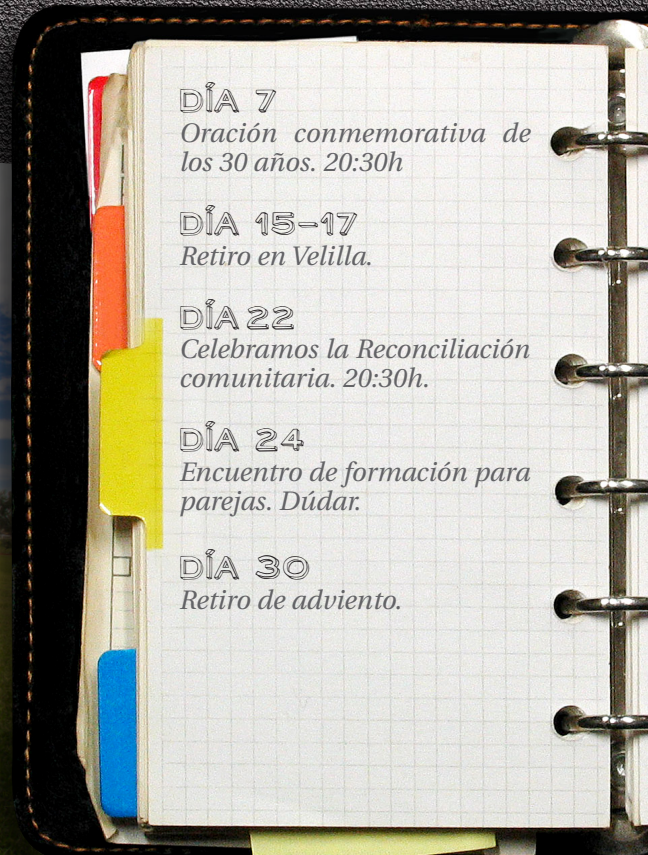 DÍA 7
Oración conmemorativa de
los 30 años. 20:30h
DÍA 15-17
Retiro en Velilla.
DÍA 22
Celebramos la Reconciliación
comunitaria. 20:30h.
DÍA 24
Encuentro de formación para
parejas. Dúdar.
DÍA 30
Retiro de adviento.